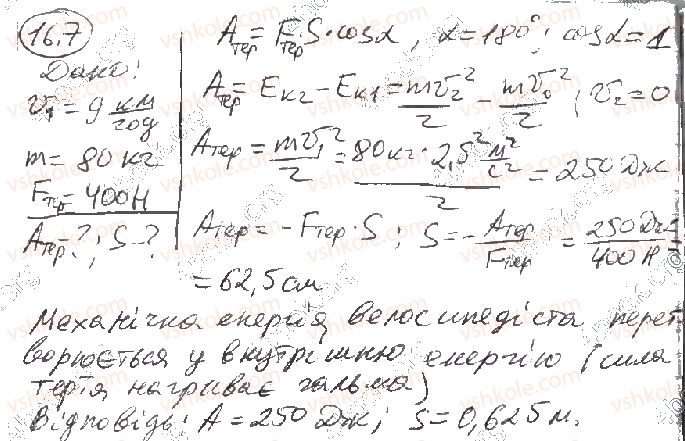 16.7
Дано:
υ₁ = 9 км/год
m = 80 кг
Fтер = 400Н
Aтер - ?; S - ?
Aтер = Fтер · S · cosα, α = 180°; cosα = 1
Aтер = Eк2 − Eк1 = mυ₂²/2 − mυ₀²/2; υ₂ = 0
Aтер = mυ₁²/2 = 80 кг · 2,5² м²/с² / 2 = 250 Дж
Aтер = − Fтер · S; S = − Aтер/Fтер = 250 Дж/400 Н =
= 62,5 см
Механічна енергія велосипедіста перет
ворюється у внутрішню енергію (сила
тертя нагріває гальма)
Відповідь: A = 250 Дж; S = 0,625 м.
vshkole.com